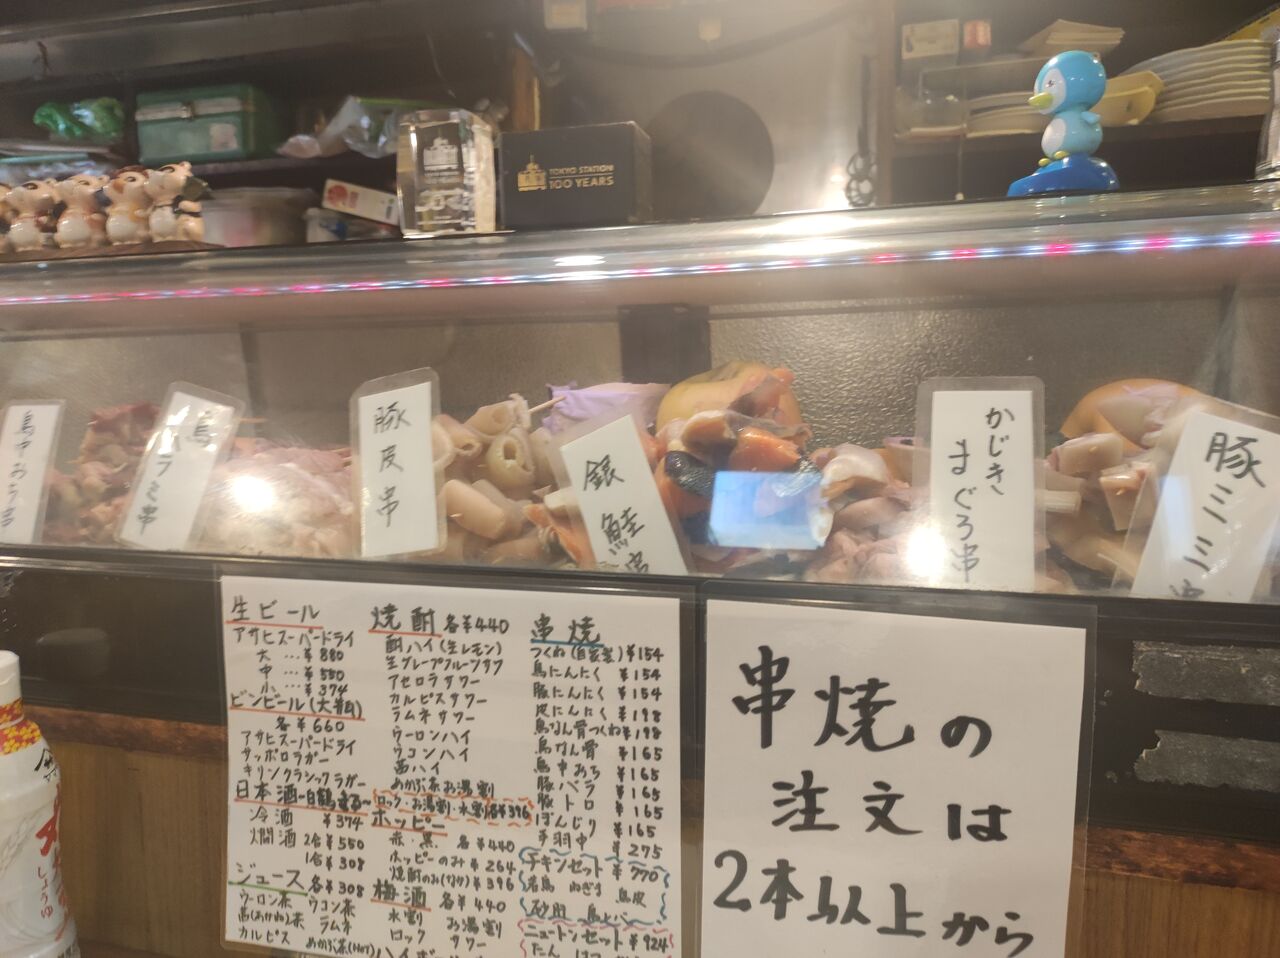 TOKYO STATION
100 YEARS
豚皮串
銀鮭串
かじき
まぐろ串
豚ミミ串
生ビール
アサヒスーパードライ
大…¥880
中…¥550
小…¥374
ビンビール(大瓶)
各¥660
アサヒスーパードライ
サッポロラガー
キリンクラシックラガー
日本酒~白鶴まる~
冷酒 ¥374
燗酒 2合¥550
1合¥308
ジュース 各¥308
ウーロン茶 ウコン茶
ラムネ
カルピス めかぶ茶(Hot)
焼酎 各¥440
酎ハイ(生レモン)
生グレープフルーツサワー
アセロラサワー
カルピスサワー
ラムネサワー
ウーロンハイ
ウコンハイ
茜ハイ
めかぶ茶お湯割
ロック・お湯割・水割各¥396
ホッピー
赤・黒 各¥440
ホッピーのみ¥264
焼酎のみ(なか)¥396
梅酒 各¥440
水割 お湯割
ロック サワー
串焼
つくね(自家製)¥154
鳥にんにく ¥154
豚にんにく ¥154
皮にんにく ¥198
鳥なん骨つくね¥198
鳥なん骨 ¥165
鳥中おち ¥165
豚バラ ¥165
豚トロ ¥165
ぼんじり ¥165
手羽中 ¥275
チキンセット ¥770
若鳥 ねぎま 鳥皮
砂肝 鳥レバー
ニュートンセット¥924
たん はつ
串焼の
注文は
2本以上から
しょうゆ